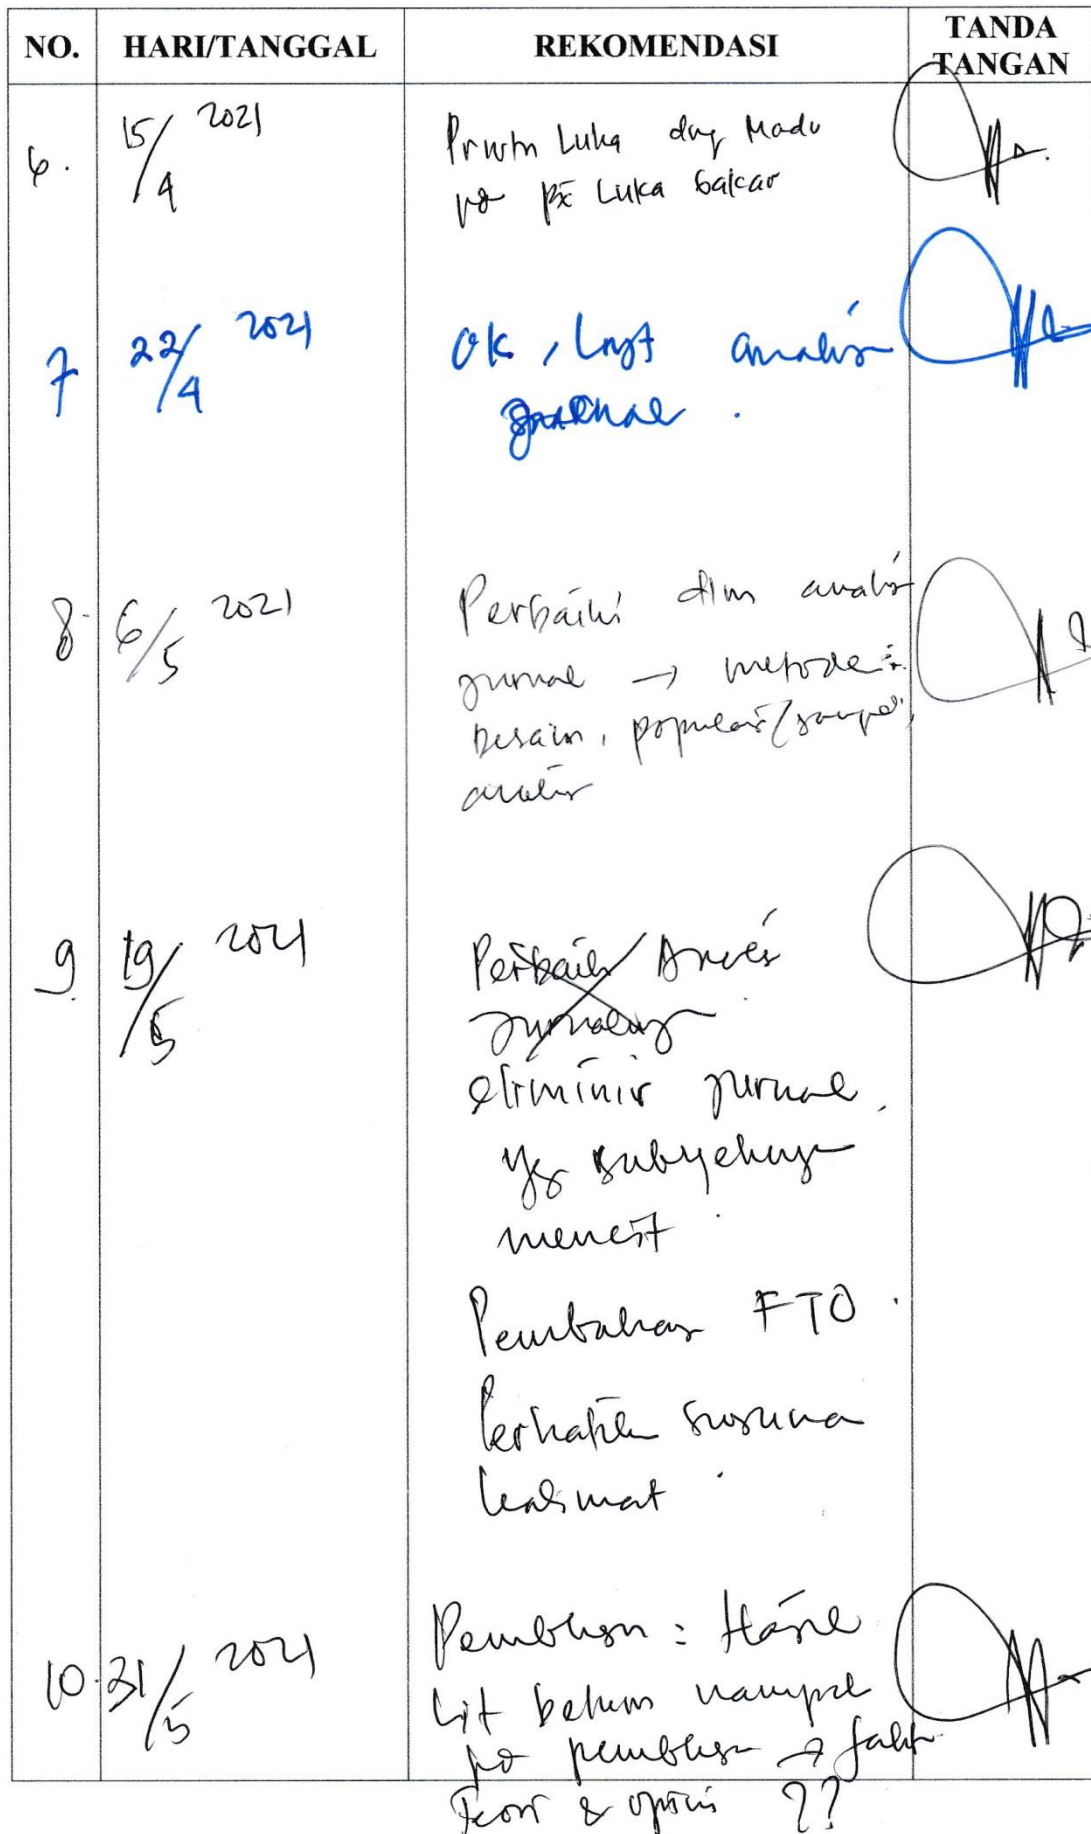 NO. HARI/TANGGAL REKOMENDASI TANDA TANGAN
6. 15/4 2021 Luka dng Madu
px Luka bakar
7 22/4 2021 OK, analisis
jurnal.
8. 6/5 2021 Perbaiki dlm analisis
jurnal → metode :
Desain, populasi/sampel,
analisis
9. 19/5 2021 Perbaiki
jurnalnya
eliminir jurnal
yg subyeknya
Pembahasan FTO.
Perhatikan susunan
kalimat.
10. 31/5 2021 Pembhsn : Hasil
Lit belum nampak
pd pembhsn → fakta
Teori & opini ??